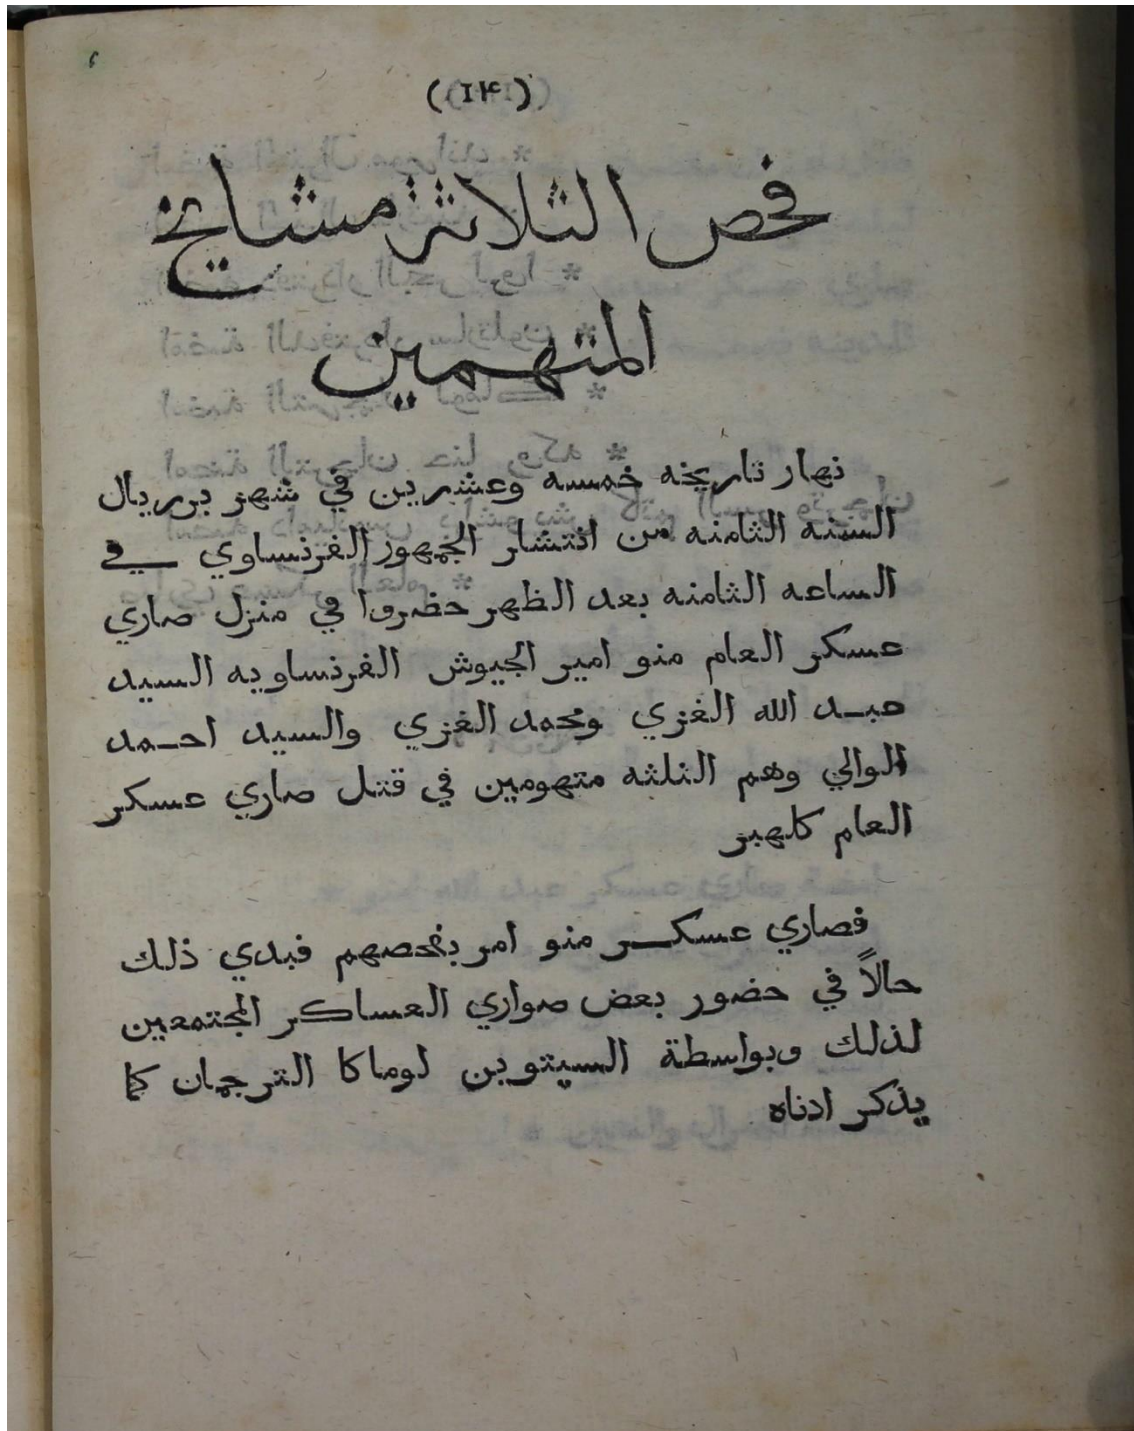 (١٤)
فحص الثلاثة مشايخ
المتهمين
نهار تاريخه خمسه وعشرين في شهر برريال
السنه الثامنه من انتشار الجمهور الفرنساوي في
الساعه الثامنه بعد الظهر حضروا في منزل صاري
عسكر العام منو امير الجيوش الفرنساويه السيد
عبد الله الغزي ومحمد الغزي والسيد احمد
الوالي وهم الثلثه متهومين في قتل صاري عسكر
العام كلهبر
فصاري عسكر منو امر بفحصهم فبدي ذلك
حالاً في حضور بعض صواري العساكر المجتمعين
لذلك وبواسطة السيتوين لوماكا الترجمان كما
يذكر ادناه